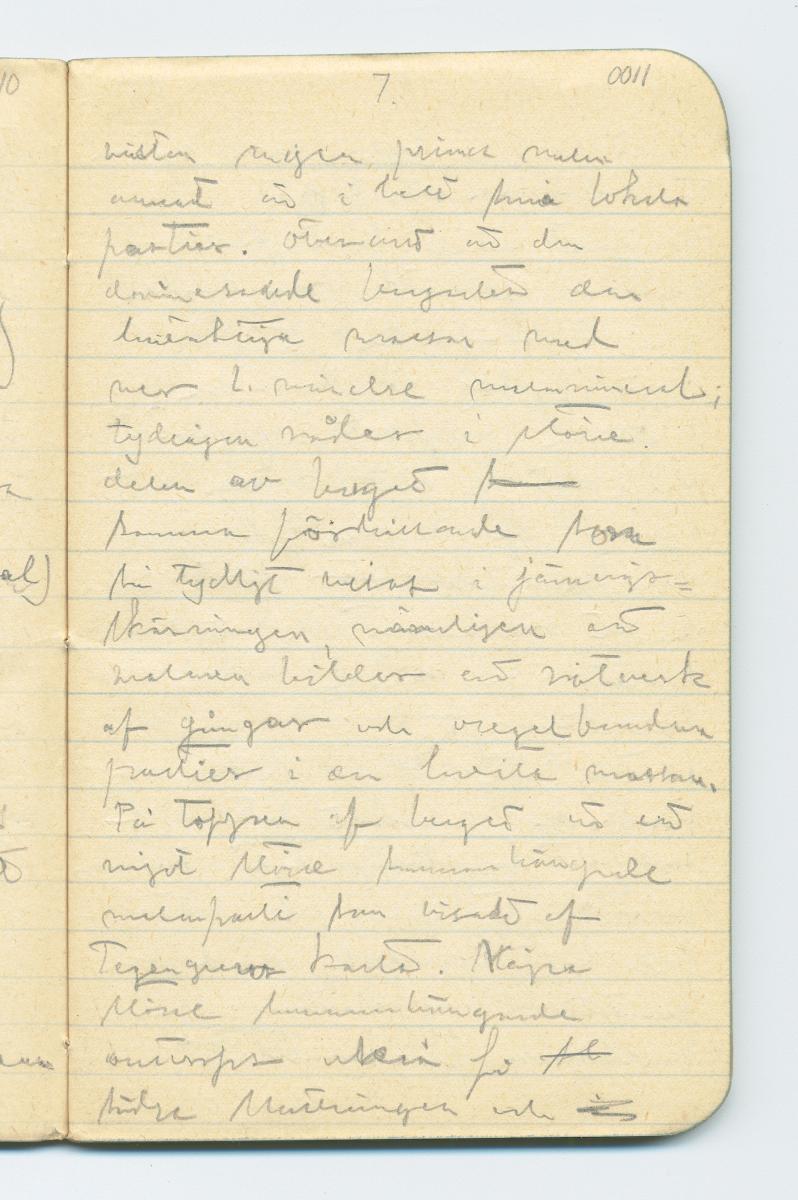 10
7.
0011
nästan ingen prima malm
annat än i helt små lokala
partier. Överallt är den
dominerande bergarten den
kvartsiga massan med
mer l. mindre malmmineral;
tydligen råder i större
delen av berget
samma förhållande som
så tydligt visas i järnvägs=
skärningen, nämligen att
malmen bildar ett nätverk
af gångar och oregelbundna
partier i den hvita massan.
På toppen af berget är ett
något större sammanhängande
malmparti som visadt af
Tegengrens karta. Några
större sammanhängande
också på
södra sluttningen och
al)